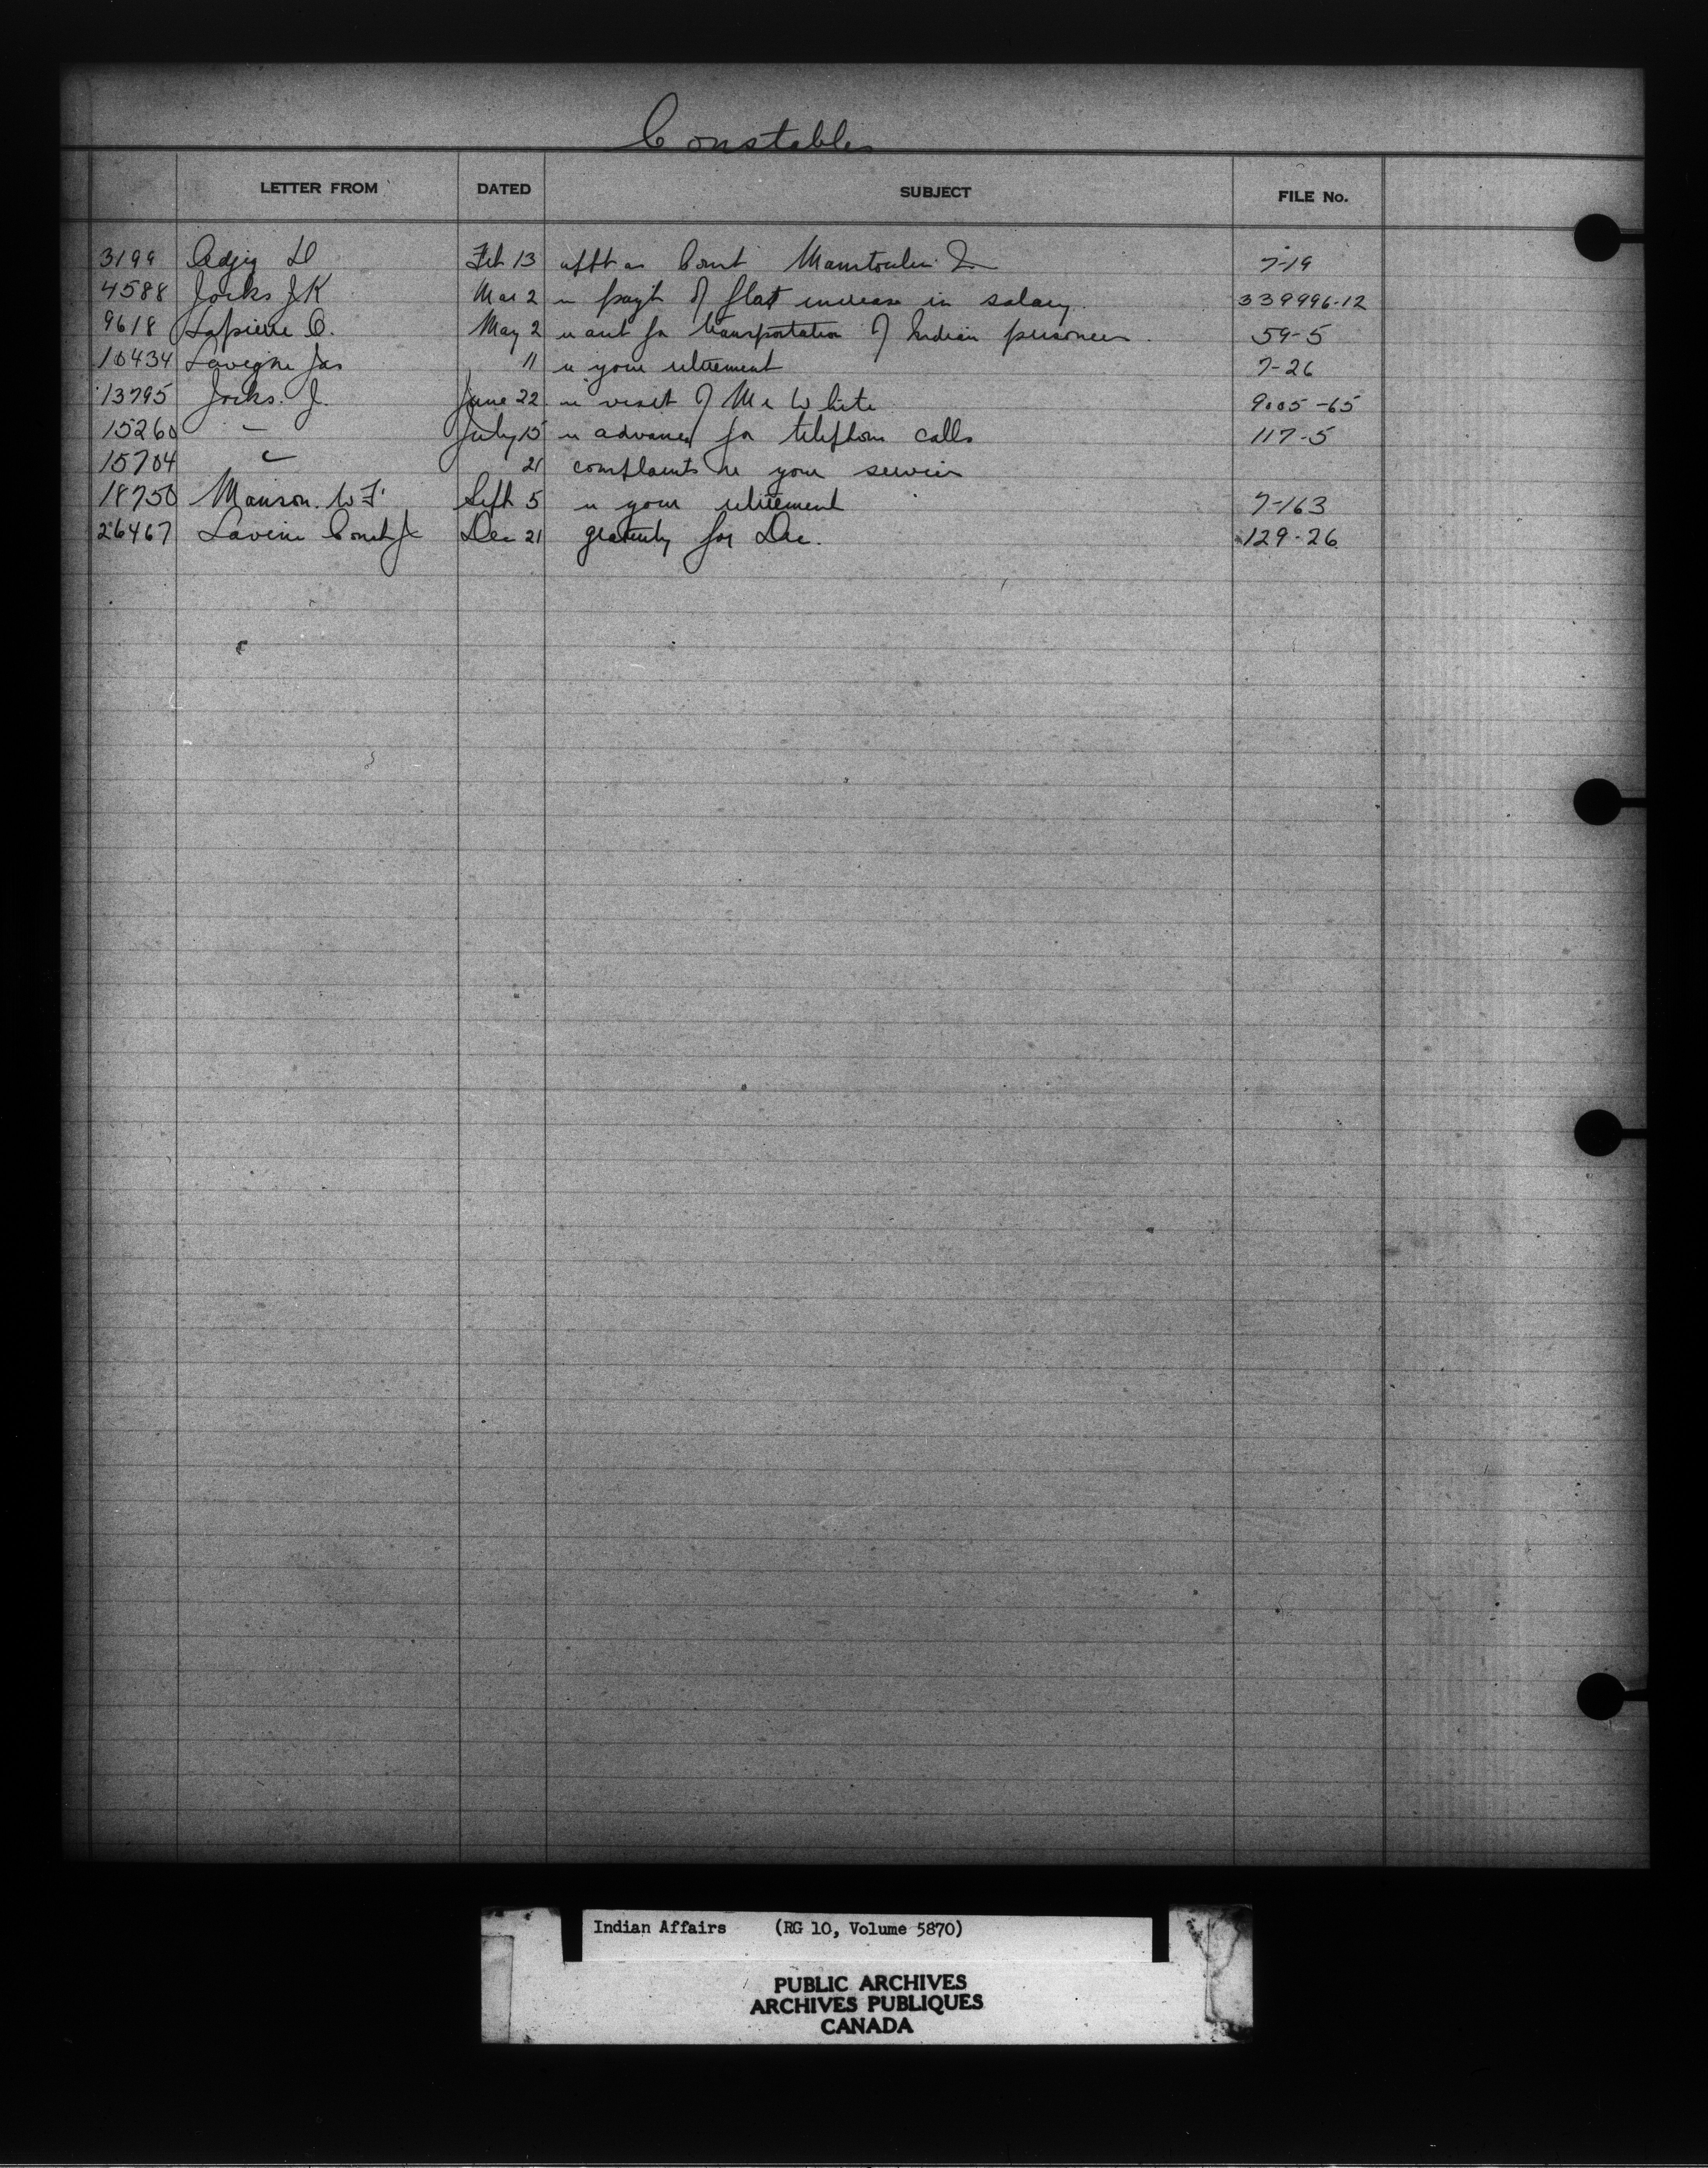 Constables
LETTER FROM DATED SUBJECT FILE No.
3199 Odjig D Feb 13 appt as Const Manitoulin I 7-19
4588 Jocks J K Mar 2 re payt of flat increase in salary. 339996-12
9618 Lapierre O. May 2 re acct for transportation of Indian prisoners. 59-5
10434 Lavigne Jas 11 re your retirement 7-26
13795 Jocks. J. June 22 re visit of Mr White 9005-65
15260 " July 15 re advances for telephone calls 117-5
15704 " 21 complaints re your services
18750 Manson. W F. Sept 5 re your retirement 7-163
26467 Lavine Const J Dec 21 gratuity for Dec. 129-26
Indian Affairs (RG 10, Volume 5870)
PUBLIC ARCHIVES
ARCHIVES PUBLIQUES
CANADA